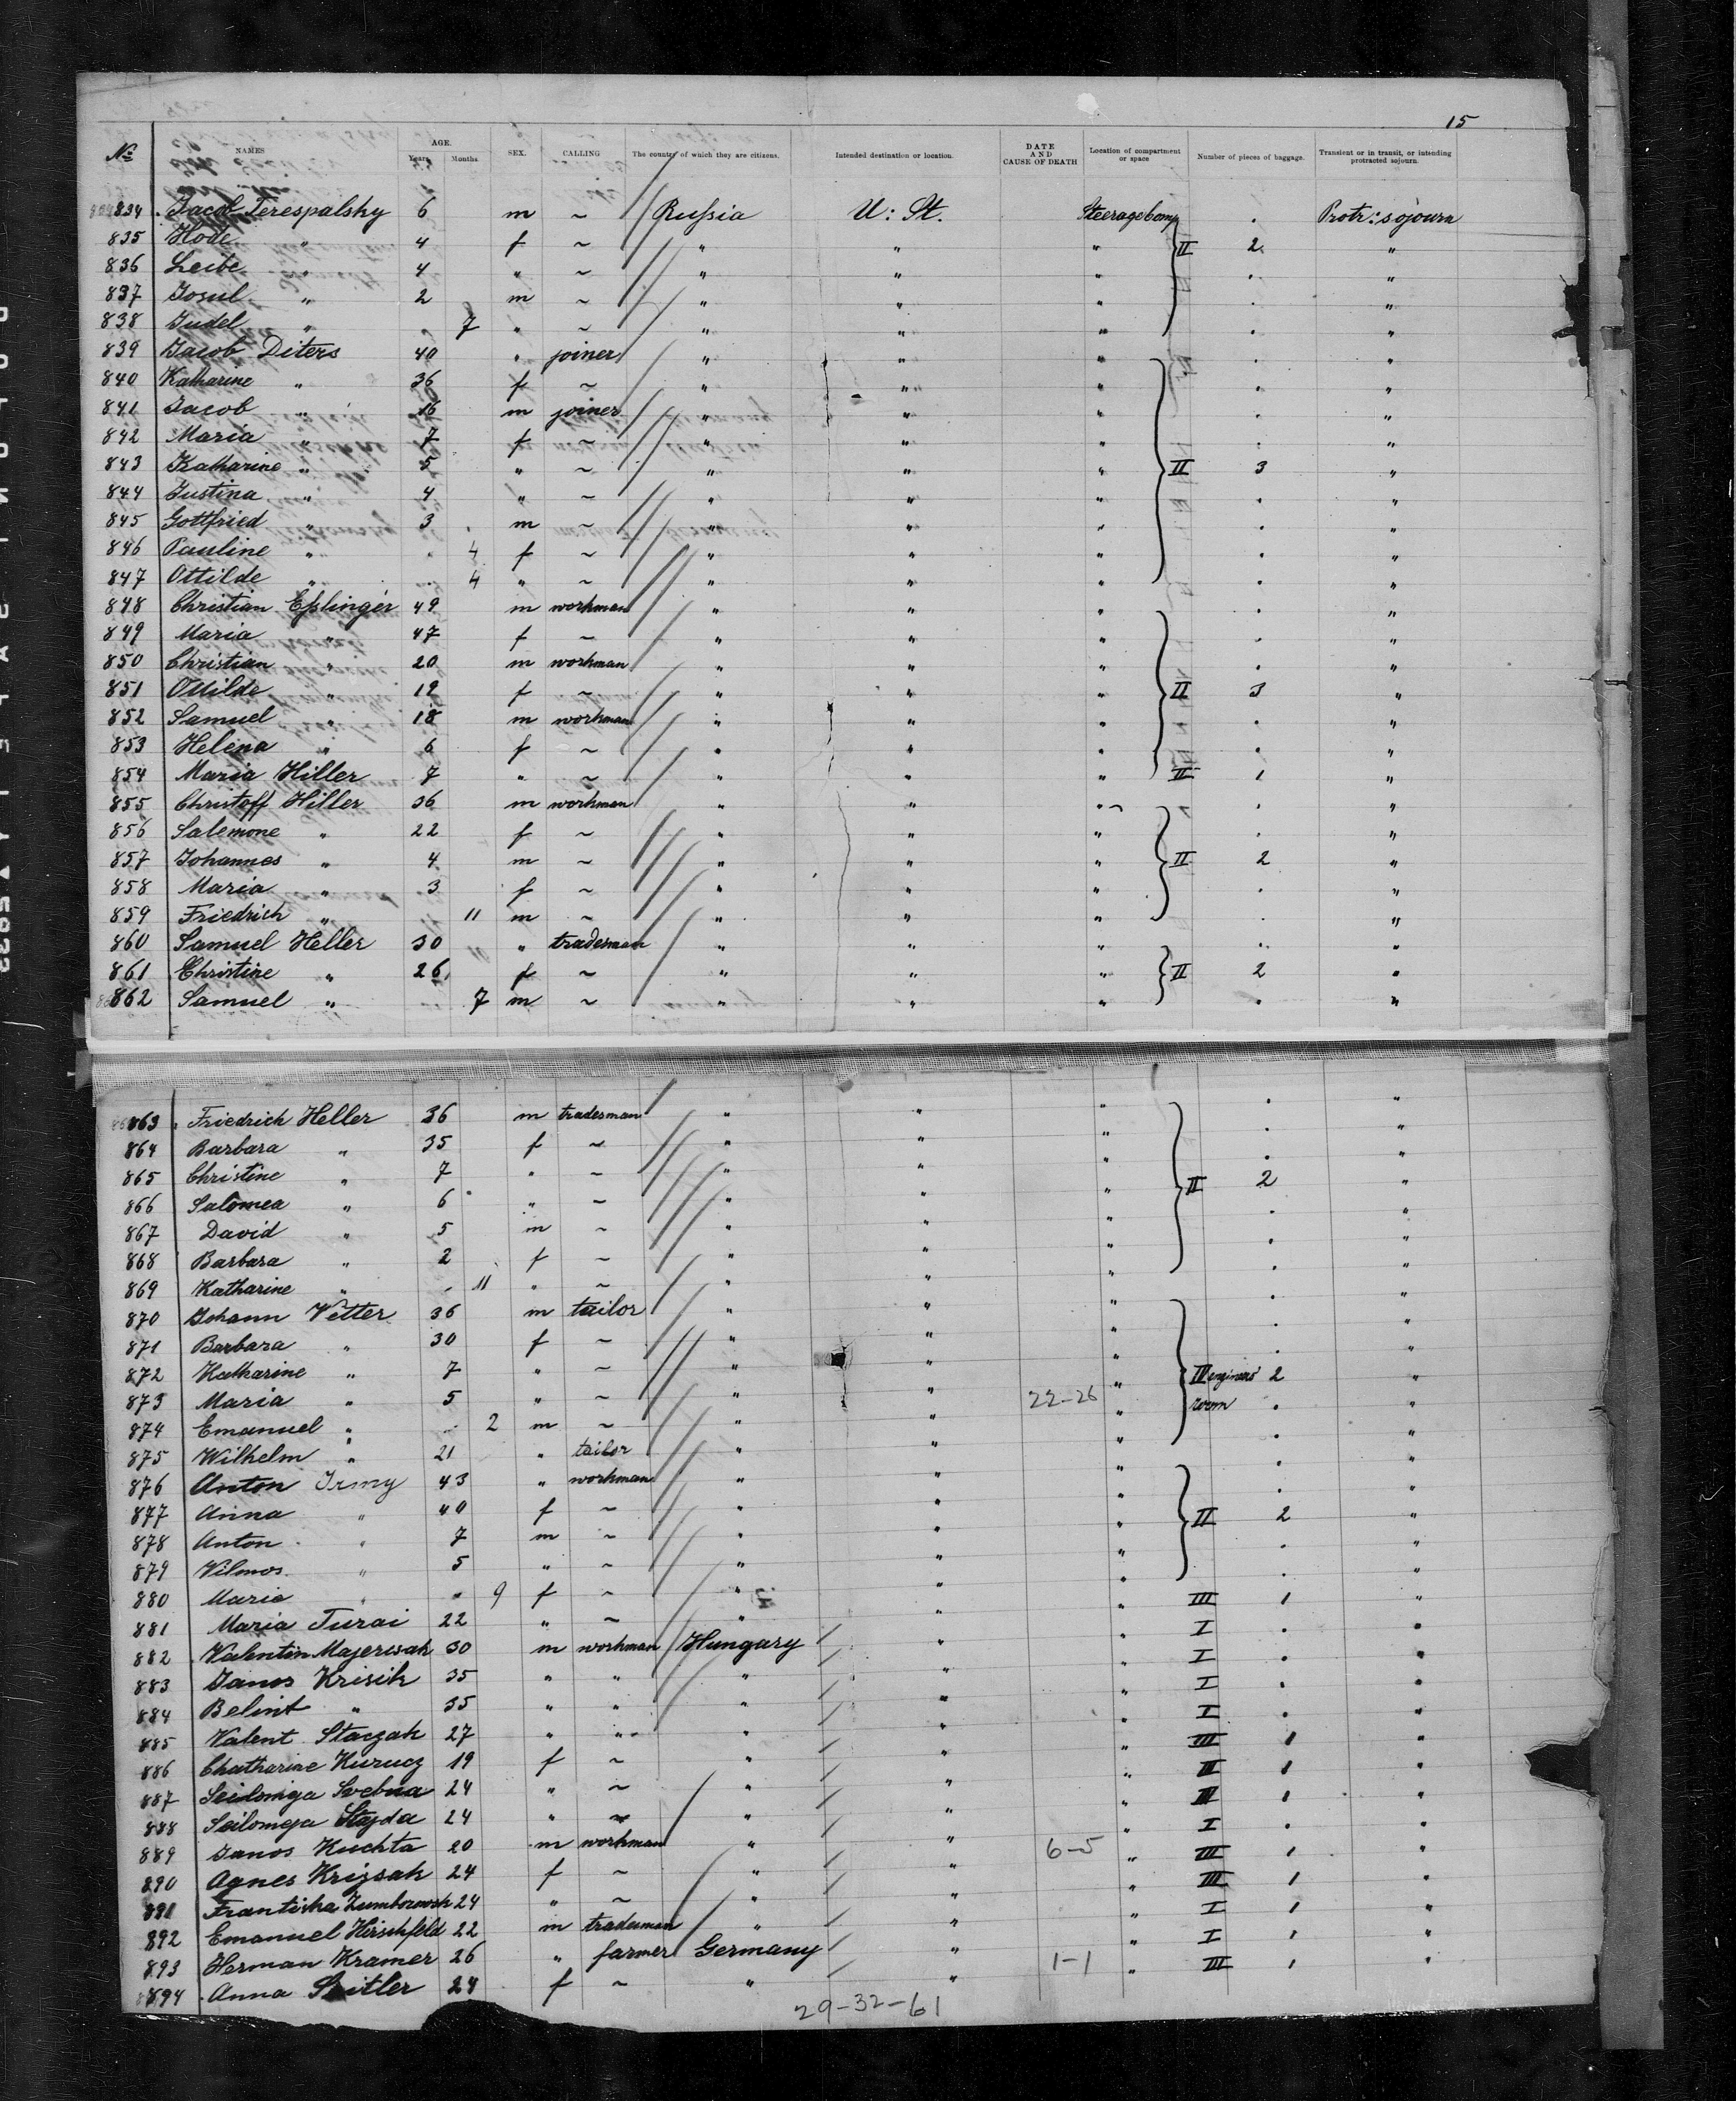 15
No NAMES AGE. Years Months. SEX. CALLING The country of which they are citizens. Intended destination or location. DATE AND CAUSE OF DEATH Location of compartment or space Number of pieces of baggage. Transient or in transit, or intending protracted sojourn.
834 Jacob Terespalsky 6 m ~ Russia U: St. Steerage Comp . Protr: sojourn
835 Hode " 4 f ~ " " " II 2 "
836 Leibe " 4 " ~ " " " . "
837 Josul " 2 m ~ " " " . "
838 Judel " . 7 " ~ " " " . "
839 Jacob Diters 40 " joiner " " " . "
840 Katharine " 36 f ~ " " " . "
841 Jacob " 16 m joiner " " " . "
842 Maria " 7 f ~ " " " . "
843 Katharine " 5 " ~ " " " II 3 "
844 Justina " 4 " ~ " " " . "
845 Gottfried " 3 m ~ " " " . "
846 Pauline " . 4 f ~ " " " . "
847 Ottilde " . 4 " ~ " " " . "
848 Christian Eßlinger 49 m workman " " " . "
849 Maria " 47 f ~ " " " . "
850 Christian " 20 m workman " " " . "
851 Ottilde " 19 f ~ " " " II 3 "
852 Samuel " 18 m workman " " " . "
853 Helena " 6 f ~ " " " . "
854 Maria Hiller 7 " ~ " " " II 1 "
855 Christoff Hiller 36 m workman " " " . "
856 Salemone " 22 f ~ " " " . "
857 Johannes " 4 m ~ " " " II 2 "
858 Maria " 3 f ~ " " " . "
859 Friedrich " 11 m ~ " " " . "
860 Samuel Heller 30 " tradesman " " " . "
861 Christine " 26 f ~ " " " II 2 "
862 Samuel " 7 m ~ " " " . "
863 Friedrich Heller 36 m tradesman " " " . "
864 Barbara " 35 f ~ " " " . "
865 Christine " 7 " ~ " " " . "
866 Salomea " 6 " ~ " " " II 2 "
867 David " 5 m ~ " " " . "
868 Barbara " 2 f ~ " " " . "
869 Katharine " . 11 " ~ " " " . "
870 Johann Vetter 36 m tailor " " " . "
871 Barbara " 30 f ~ " " " . "
872 Katharine " 7 " ~ " " " . "
873 Maria " 5 " ~ " " 22-26 " III engineers room 2 "
874 Emanuel " . 2 m ~ " " " . "
875 Wilhelm " 21 " tailor " " " . "
876 Anton Irmy 43 " workman " " " . "
877 Anna " 40 f ~ " " " . "
878 Anton " 7 m ~ " " " II 2 "
879 Vilmos " 5 " ~ " " " . "
880 Maria " " 9 f ~ " " " . "
881 Maria Turai 22 " ~ " " " III 1 "
882 Valentin Majercsak 30 m workman Hungary " " I . "
883 Janos Krisik 35 " " " " " I . "
884 Belint " 35 " " " " " I . "
885 Valent Staczak 27 " " " " " I . "
886 Chatharine Kurucz 19 f ~ " " " III 1 "
887 24 " ~ " " " III 1 "
888 Stajda 24 " ~ " " " III 1 "
889 Janos Kuchta 20 m workman " " 6-5 " I . "
890 Agnes Krizsak 24 f ~ " " " III 1 "
891 Frantiska 24 " ~ " " " III 1 "
892 Emanuel Hirschfeld 22 m tradesman " " " I 1 "
893 Herman Kramer 26 " farmer Germany " 1-1 " I 1 "
894 Anna 24 f ~ " " " III 1 "
29-32-61